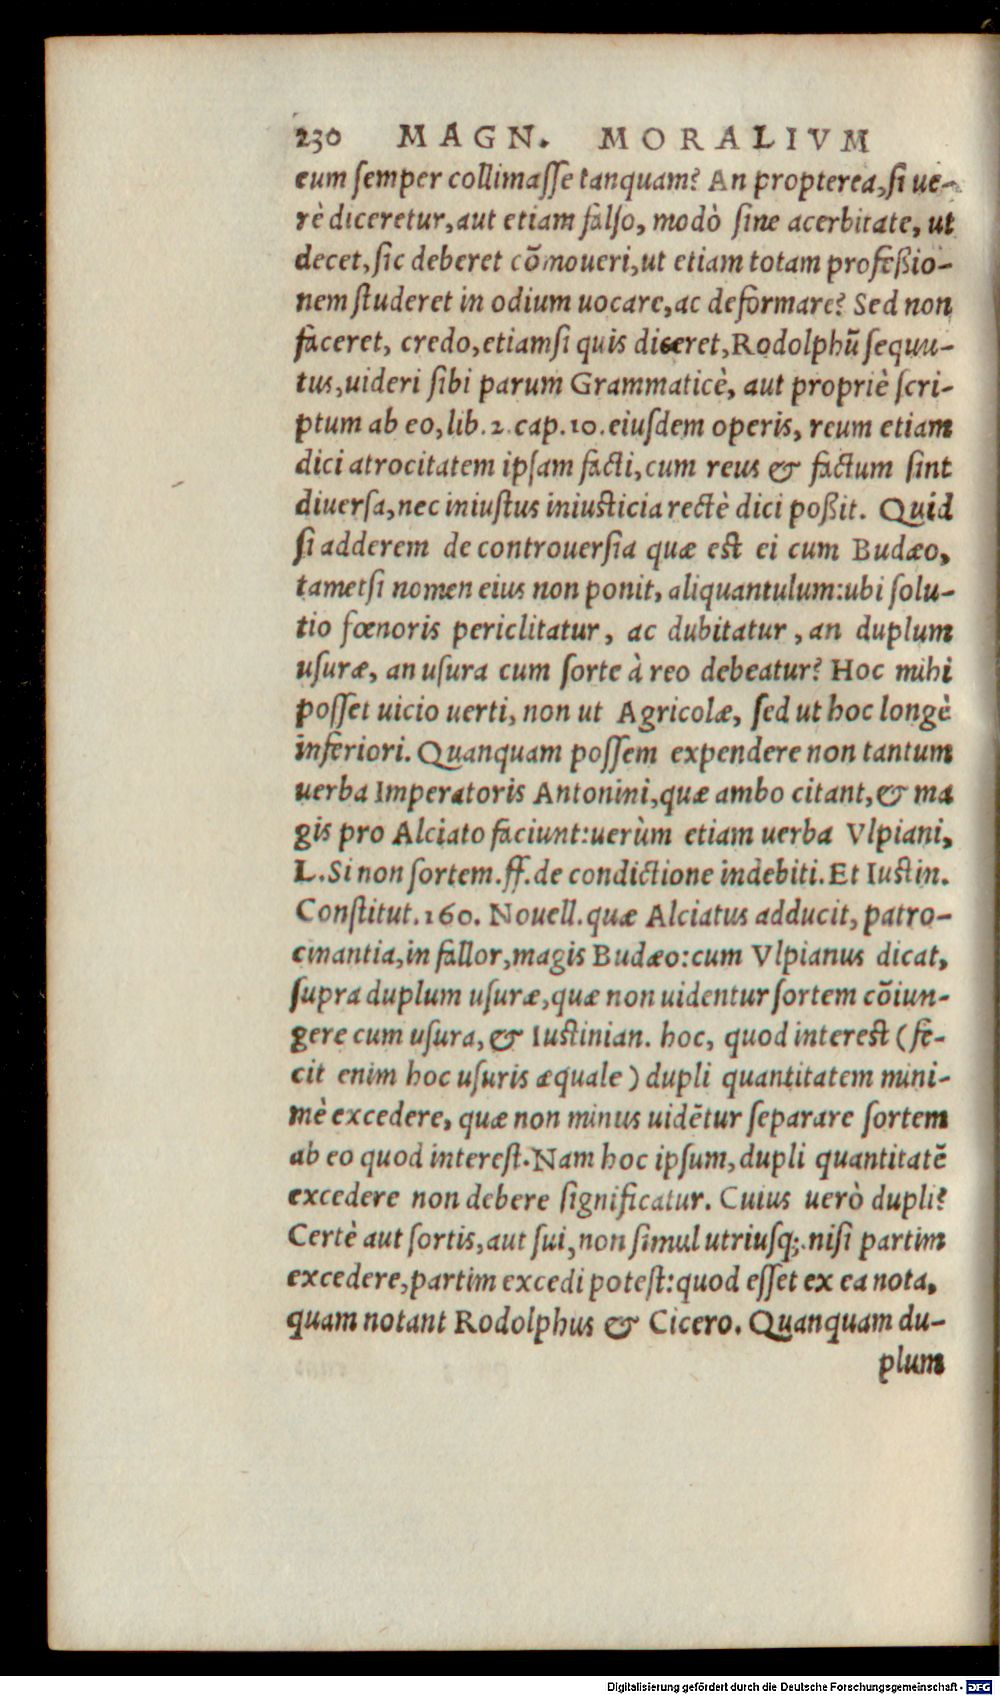 230 MAGN. MORALIVM
eum semper collimasse tanquam? An propterea, si ue-
rè diceretur, aut etiam falso, modò sine acerbitate, ut
decet, sic deberet cõmoueri, ut etiam totam profeßio-
nem studeret in odium uocare, ac deformare? Sed non
faceret, credo, etiamsi quis diceret, Rodolphũ sequu-
tus, uideri sibi parum Grammaticè, aut propriè scri-
ptum ab eo, lib. 2. cap. 10. eiusdem operis, reum etiam
dici atrocitatem ipsam facti, cum reus & factum sint
diuersa, nec iniustus iniusticia rectè dici poßit. Quid
si adderem de controuersia quæ est ei cum Budæo,
tametsi nomen eius non ponit, aliquantulum: ubi solu-
tio fœnoris periclitatur, ac dubitatur, an duplum
usuræ, an usura cum sorte à reo debeatur? Hoc mihi
posset uicio uerti, non ut Agricolæ, sed ut hoc longè
inferiori. Quanquam possem expendere non tantum
uerba Imperatoris Antonini, quæ ambo citant, & ma
gis pro Alciato faciunt: uerùm etiam uerba Vlpiani,
L. Si non sortem. ff. de condictione indebiti. Et Iustin.
Constitut. 160. Nouell. quæ Alciatus adducit, patro-
cinantia, in fallor, magis Budæo: cum Vlpianus dicat,
supra duplum usuræ, quæ non uidentur sortem cõiun-
gere cum usura, & Iustinian. hoc, quod interest (fe-
cit enim hoc usuris æquale) dupli quantitatem mini-
mè excedere, quæ non minus uidẽtur separare sortem
ab eo quod interest. Nam hoc ipsum, dupli quantitatẽ
excedere non debere significatur. Cuius uerò dupli?
Certè aut sortis, aut sui, non simul utriusq;. nisi partim
excedere, partim excedi potest: quod esset ex ea nota,
quam notant Rodolphus & Cicero. Quanquam du-
plum
Digitalisierung gefördert durch die Deutsche Forschungsgemeinschaft - DFG